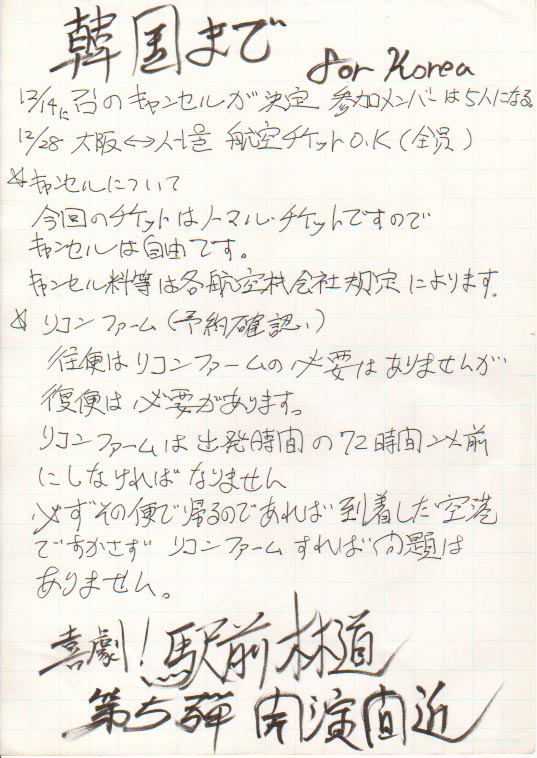 韓国まで for Korea
12/14に 召のキャンセルが決定 参加メンバーは5人になる。
12/28 大阪↔ソウル 航空チケットO.K(全員)
☆キャンセルについて
今回のチケットはノーマル・チケットですので
キャンセルは自由です。
キャンセル料等は各航空会社規定によります。
☆リコンファーム(予約確認)
往便はリコンファームの必要はありませんが
復便は必要があります。
リコンファームは出発時間の72時間以前
にしなければなりません
必ずその便で帰るのであれば到着した空港
ですかさず リコンファームすれば問題は
ありません。
喜劇!駅前林道
第5弾 開演直近